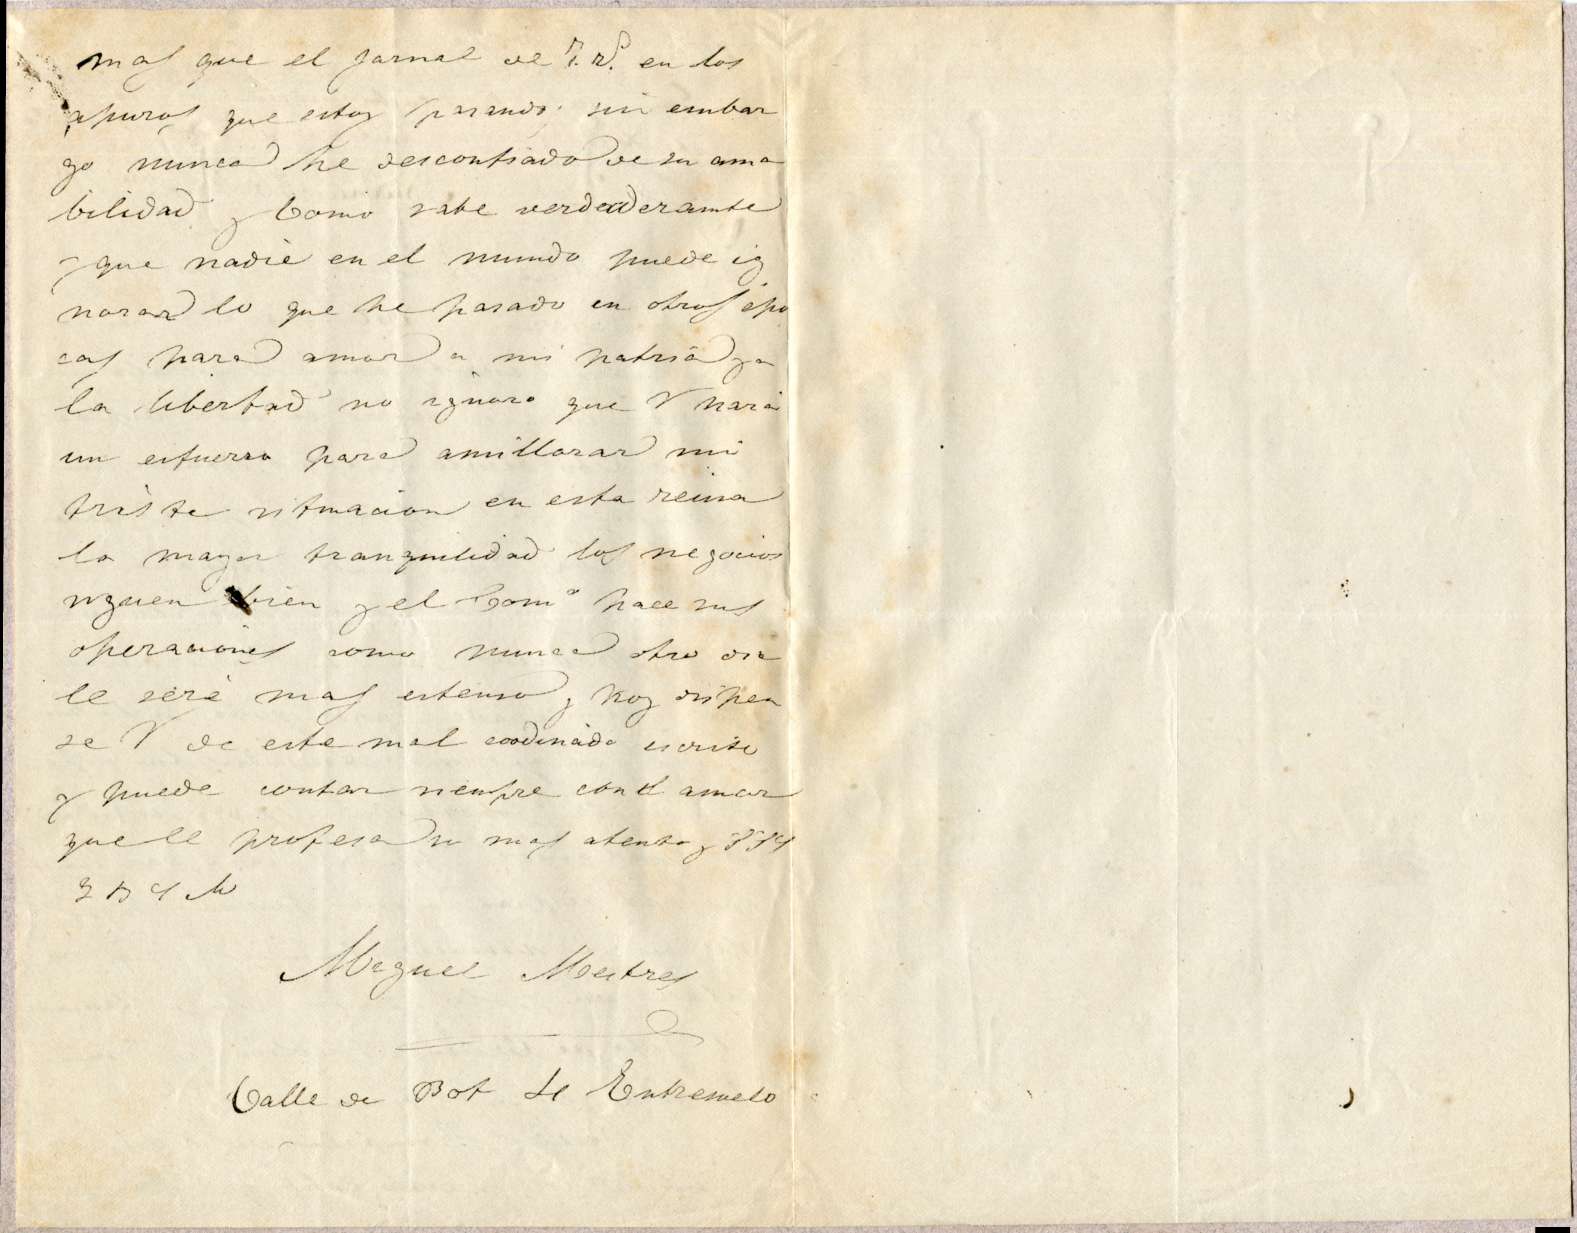 mas que el jornal de 7. rs. en los
apuros que estoy pasando; sin embar
go nunca he desconfiado de su ama
bilidad y como sabe verdaderamte
y que nadie en el mundo puede ig
norar lo que he pasado en otras épo
cas para amar a mi patria y a
la libertad no ignoro que V hara
un esfuerzo para amillorar mi
triste situacion en esta reina
la mayor tranquilidad los negocios
siguen bien y el Comº hace sus
operaciones como nunca otro dia
le seré mas estenso y hoy dispen
se V de este mal coordinado escrito
y puede contar siempre con el amor
que le profesa su mas atento y SS
Q B S M
Miguel Mestres
Calle de Bot Entresuelo